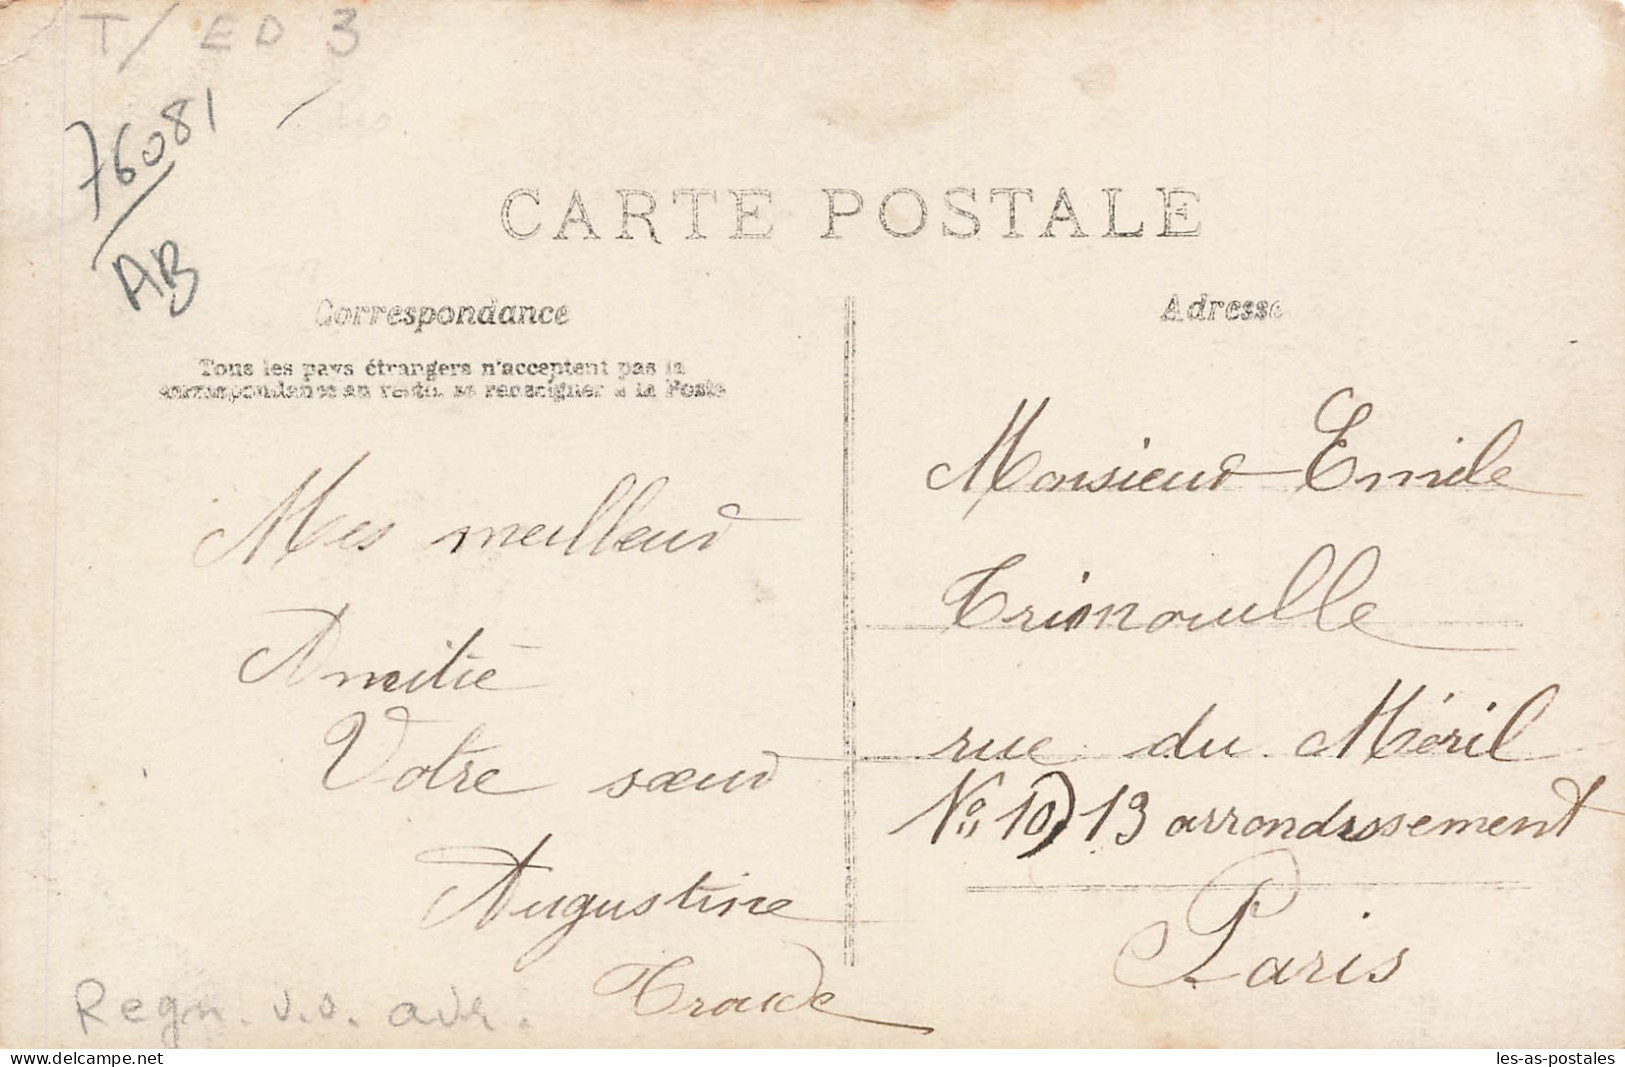 T/ ED 3
76081
AB
CARTE POSTALE
Correspondance
Tous les pays étrangers n'acceptent pas la
correspondance au recto, se renseigner à la Poste
Mes meilleur
Amitié
Votre sœur
Augustine
Adresse
Monsieur Emile
Trimouille
rue du Méril
No 10) 13 arrondissement
Paris
Regn. v.v. adr.
les-as-postales